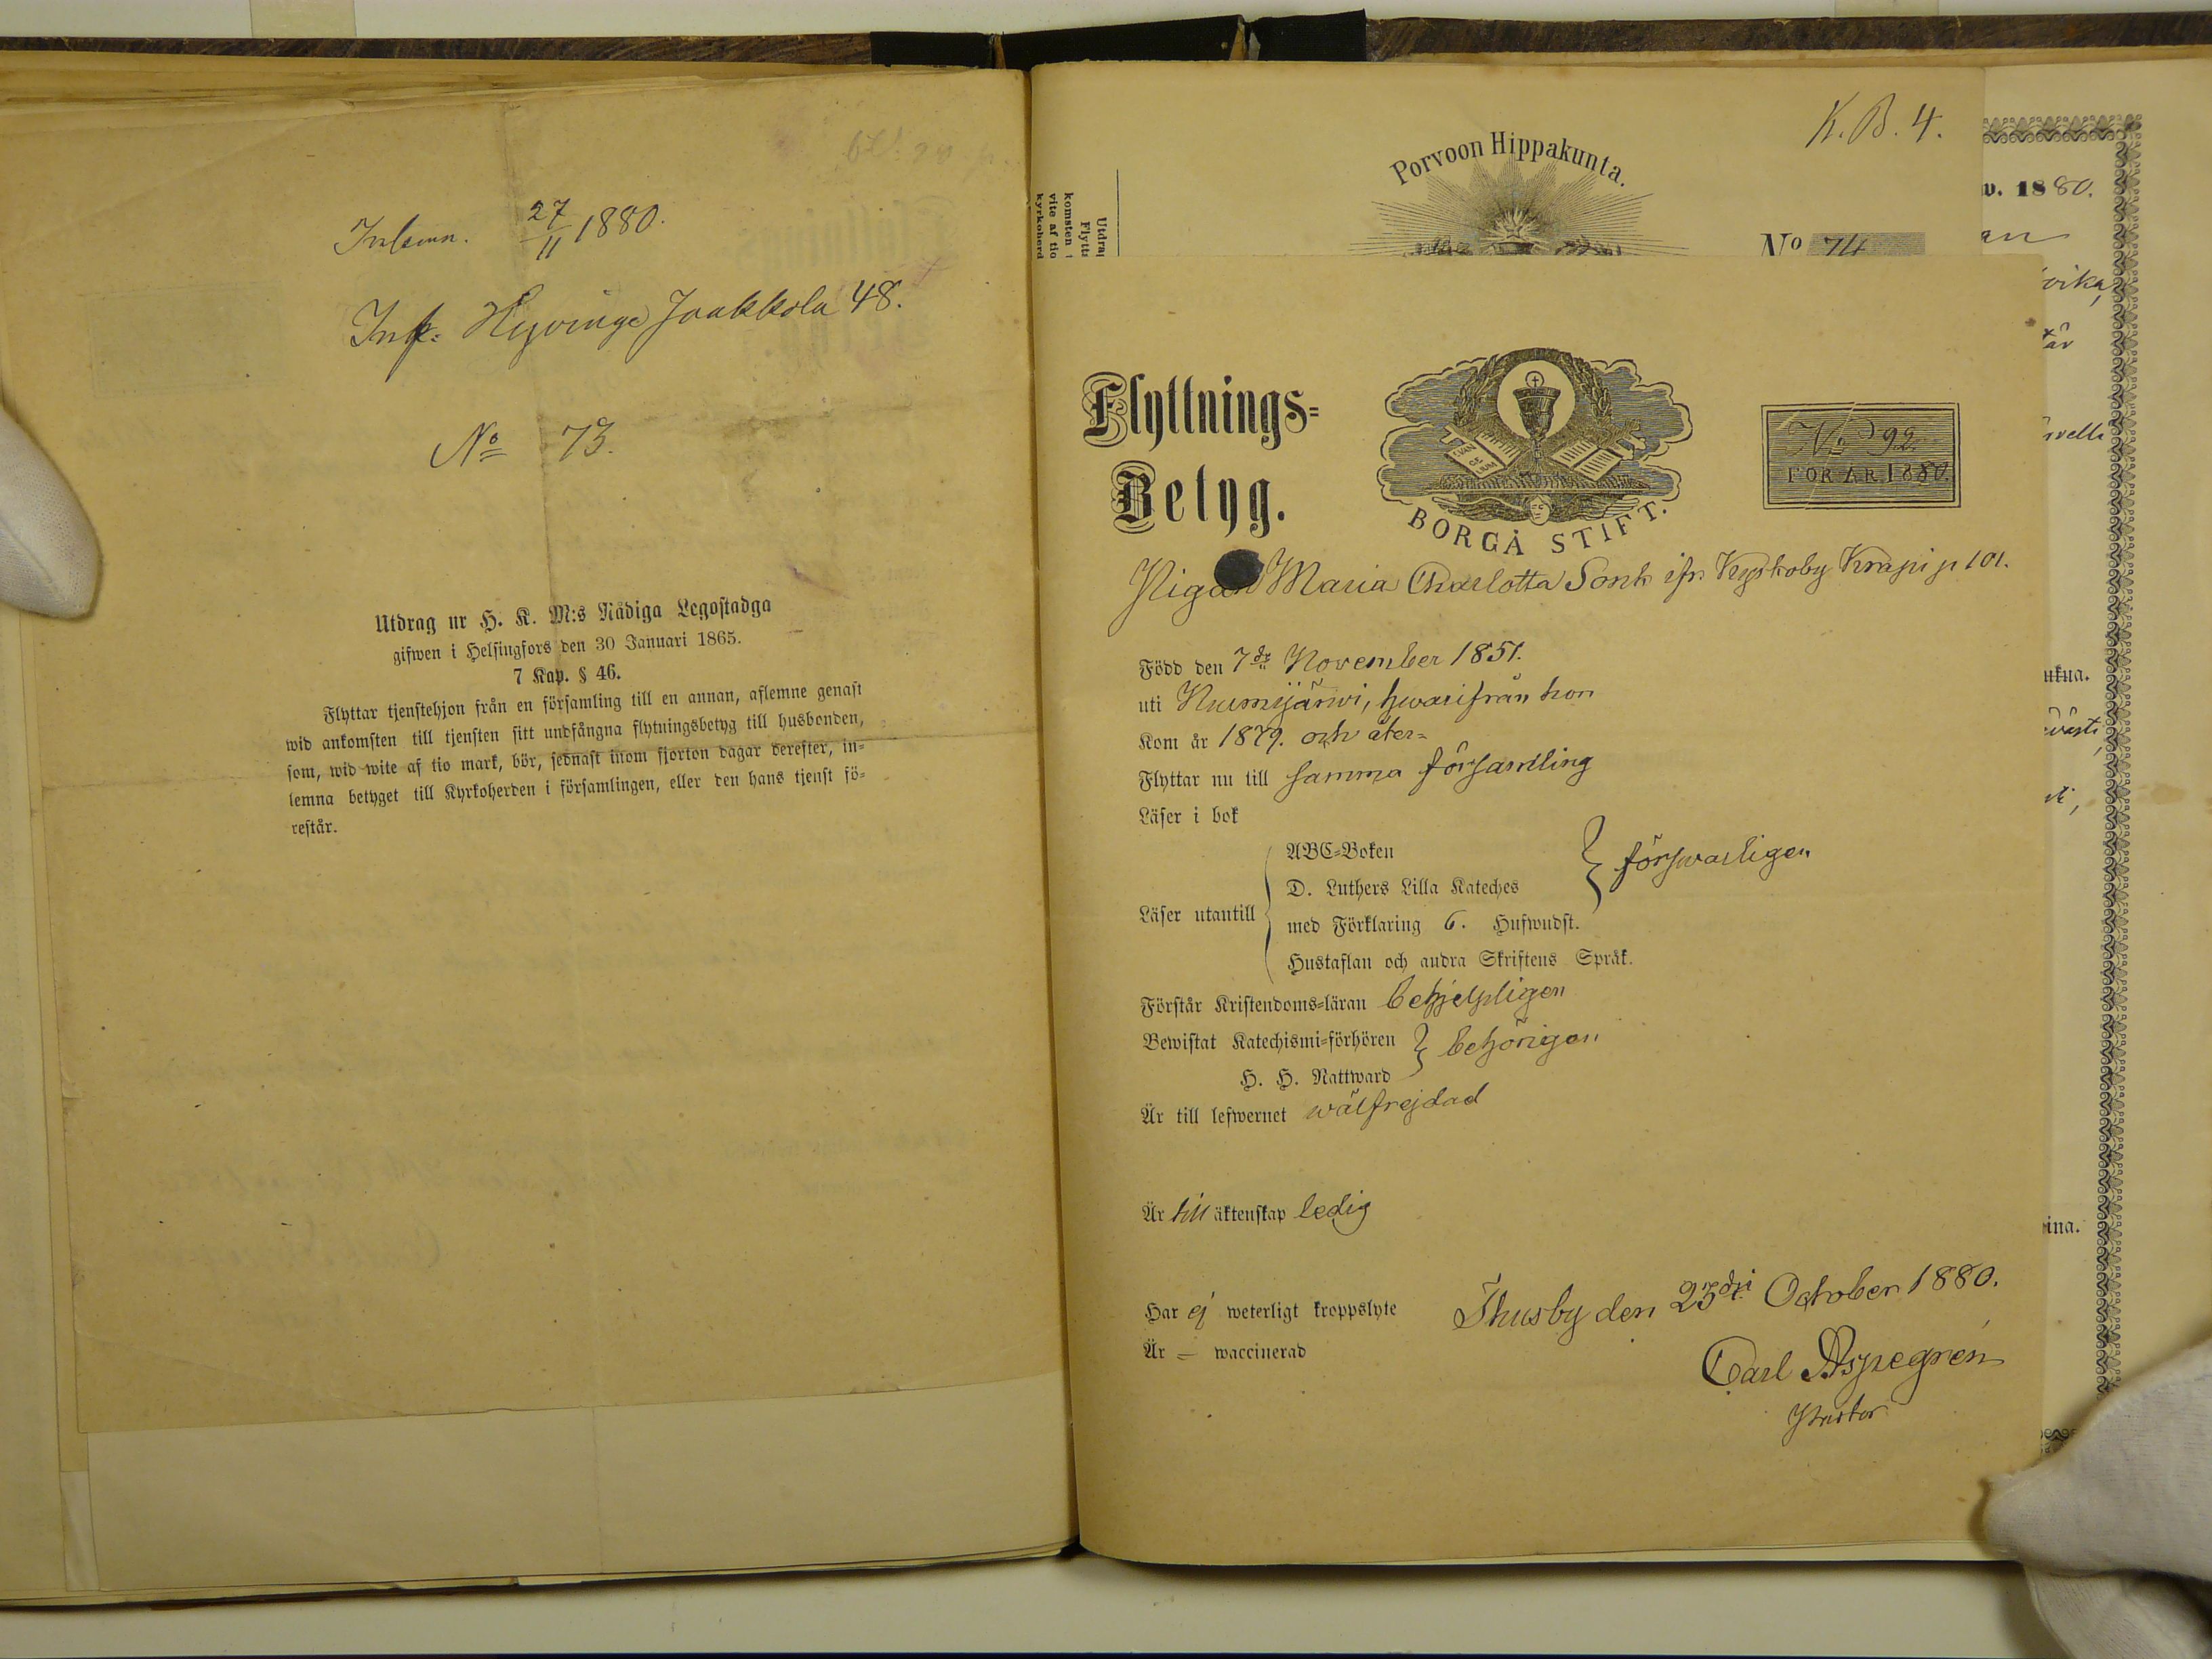 Inlemn. 27/11 1880.
Inf. Hyvinge Jaakkola 48.
No 73.
Utdrag ur H. K. M:s Nådiga Legostadga
gifwen i Helsingfors den 30 Januari 1865.
7 Kap. § 46.
Flyttar tjenstehjon från en församling till en annan, aflemne genast
wid ankomsten till tjensten sitt undfångna flytningsbetyg till husbonden,
som, wid wite af tio mark, bör, sednast inom fjorton dagar derefter, in=
lemna betyget till Kyrkoherden i församlingen, eller den hans tjenst fö=
restår.
K. B. 4.
Porvoon Hippakunta.
No 74
Flyttnings=
Betyg.
EVAN
GE
LIUM
BORGÅ STIFT.
No 92.
FÖR ÅR 1880.
Pigan Maria Charlotta Sonk ifr. Kyrkoby Krapi p 101.
Född den 7de November 1851.
uti Nurmijärvi, hwarifrån hon
Kom år 1879. och åter=
Flyttar nu till samma församling
Läser i bok
ABC=Boken
D. Luthers Lilla Kateches
försvarligen
Läser utantill
med Förklaring 6. Hufwudst.
Hustaflan och andra Skriftens Språk.
Förstår Kristendoms=läran behjelpligen
Bewistat Katechismi=förhören
behörigen
H. H. Nattward
Är till lefwernet wälfrejdad
Är till äktenskap ledig
Har ej weterligt kroppslyte
Är = waccinerad
Thusby den 23dje October 1880.
Carl Aspegrén
Pastor
Utdra
Flytt
komsten
vite af tio
kyrkoherd
v. 1880.
an
vika,
ina.